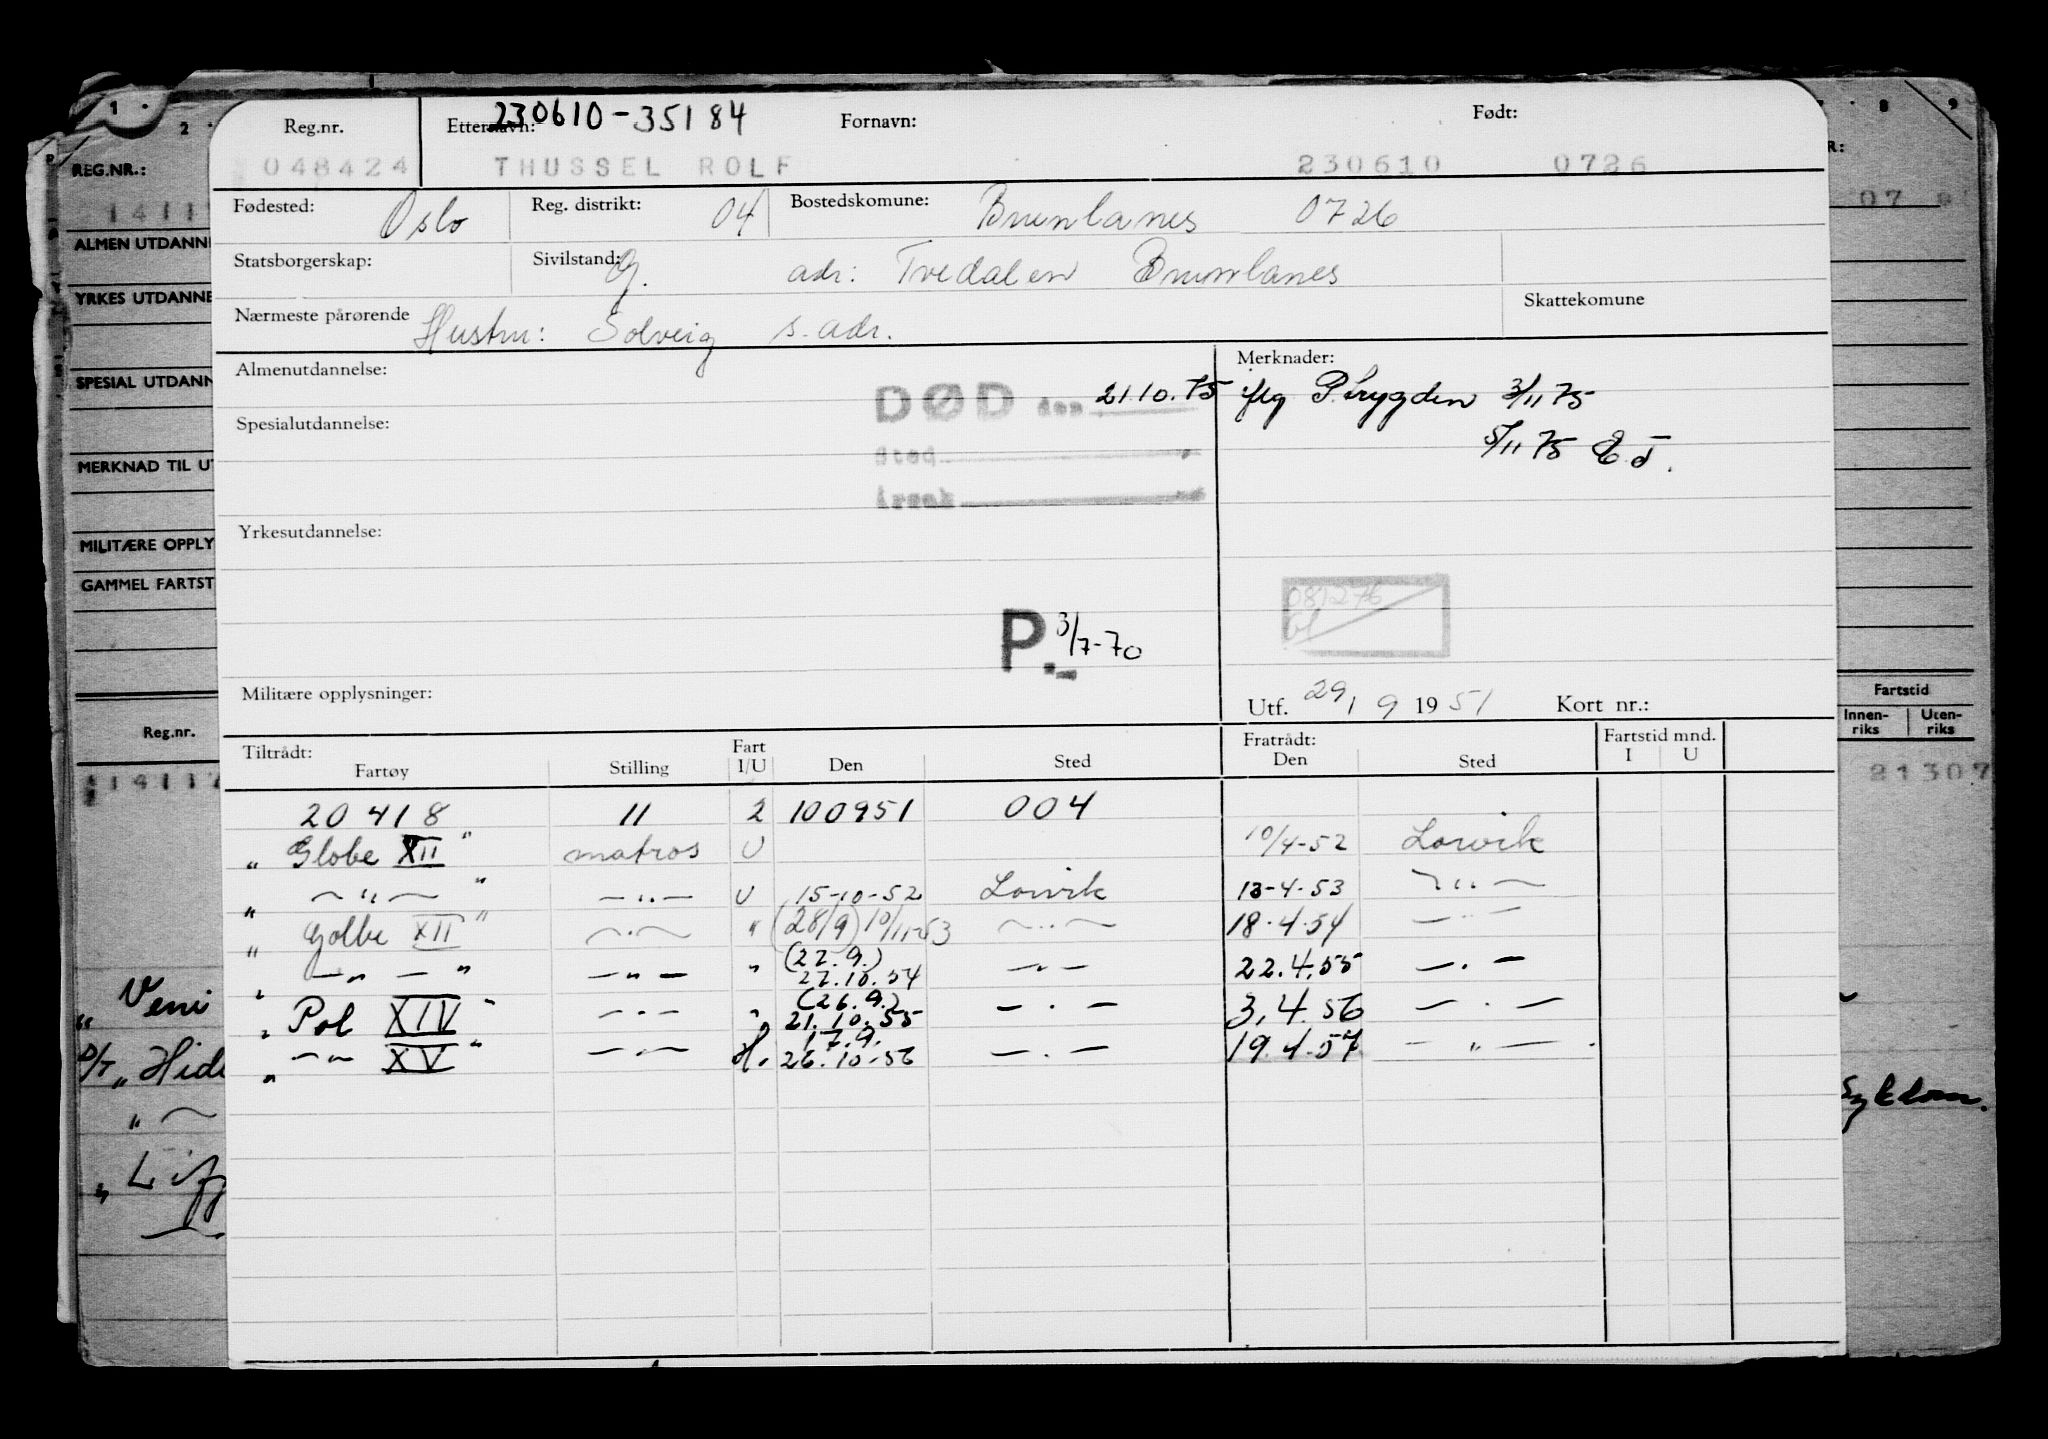 230610-35184
Reg.nr. Etternavn: Fornavn: Født:
048424 THUSSEL ROLF 230610 0726
Fødested: Oslo Reg. distrikt: 04 Bostedskomune: Brunlanes 0726
Statsborgerskap: Sivilstand: G. adr: Tvedalen Brunlanes
Nærmeste pårørende Hustru: Solveig s. adr. Skattekomune
Almenutdannelse: Merknader:
DØD den 21 10.75 iflg P.trygden 3/11 75
Spesialutdannelse: 5/11 75 E.J.
Sted
Årsak
Yrkesutdannelse:
081276
P. 3/7-70
Militære opplysninger: Utf. 29/ 9 1951 Kort nr.:
Tiltrådt: Fart Fratrådt: Fartstid mnd.
Fartøy Stilling I/U Den Sted Den Sted I U
20418 11 2 100951 004
" Globe XII " matros U 10/4-52 Larvik
" — " — " — " — U 15-10-52 Larvik 13-4-53 — " —
" Golbe XII " — " — " (28/9) 10/11-53 — " — 18.4.54 — " —
" — " — " — " — " (22.9.) 22.10.54 — " — 22.4.55 — " —
" Pol XIV " — " — " (26.9.) 21.10.55 — " — 3.4.56 — " —
" — " XV " — " — H. 17.9. 26.10.56 — " — 19.4.57 — " —
1 2 8 9
REG.NR.:
1411
07
ALMEN UTDANN
YRKES UTDANNE
SPESIAL UTDANN
MERKNAD TIL UT
MILITÆRE OPPLY
GAMMEL FARTST
Fartstid
Reg.nr. Innen-riks Uten-riks
21307
" Veni
D/T " Hid
" —
Sykdom.